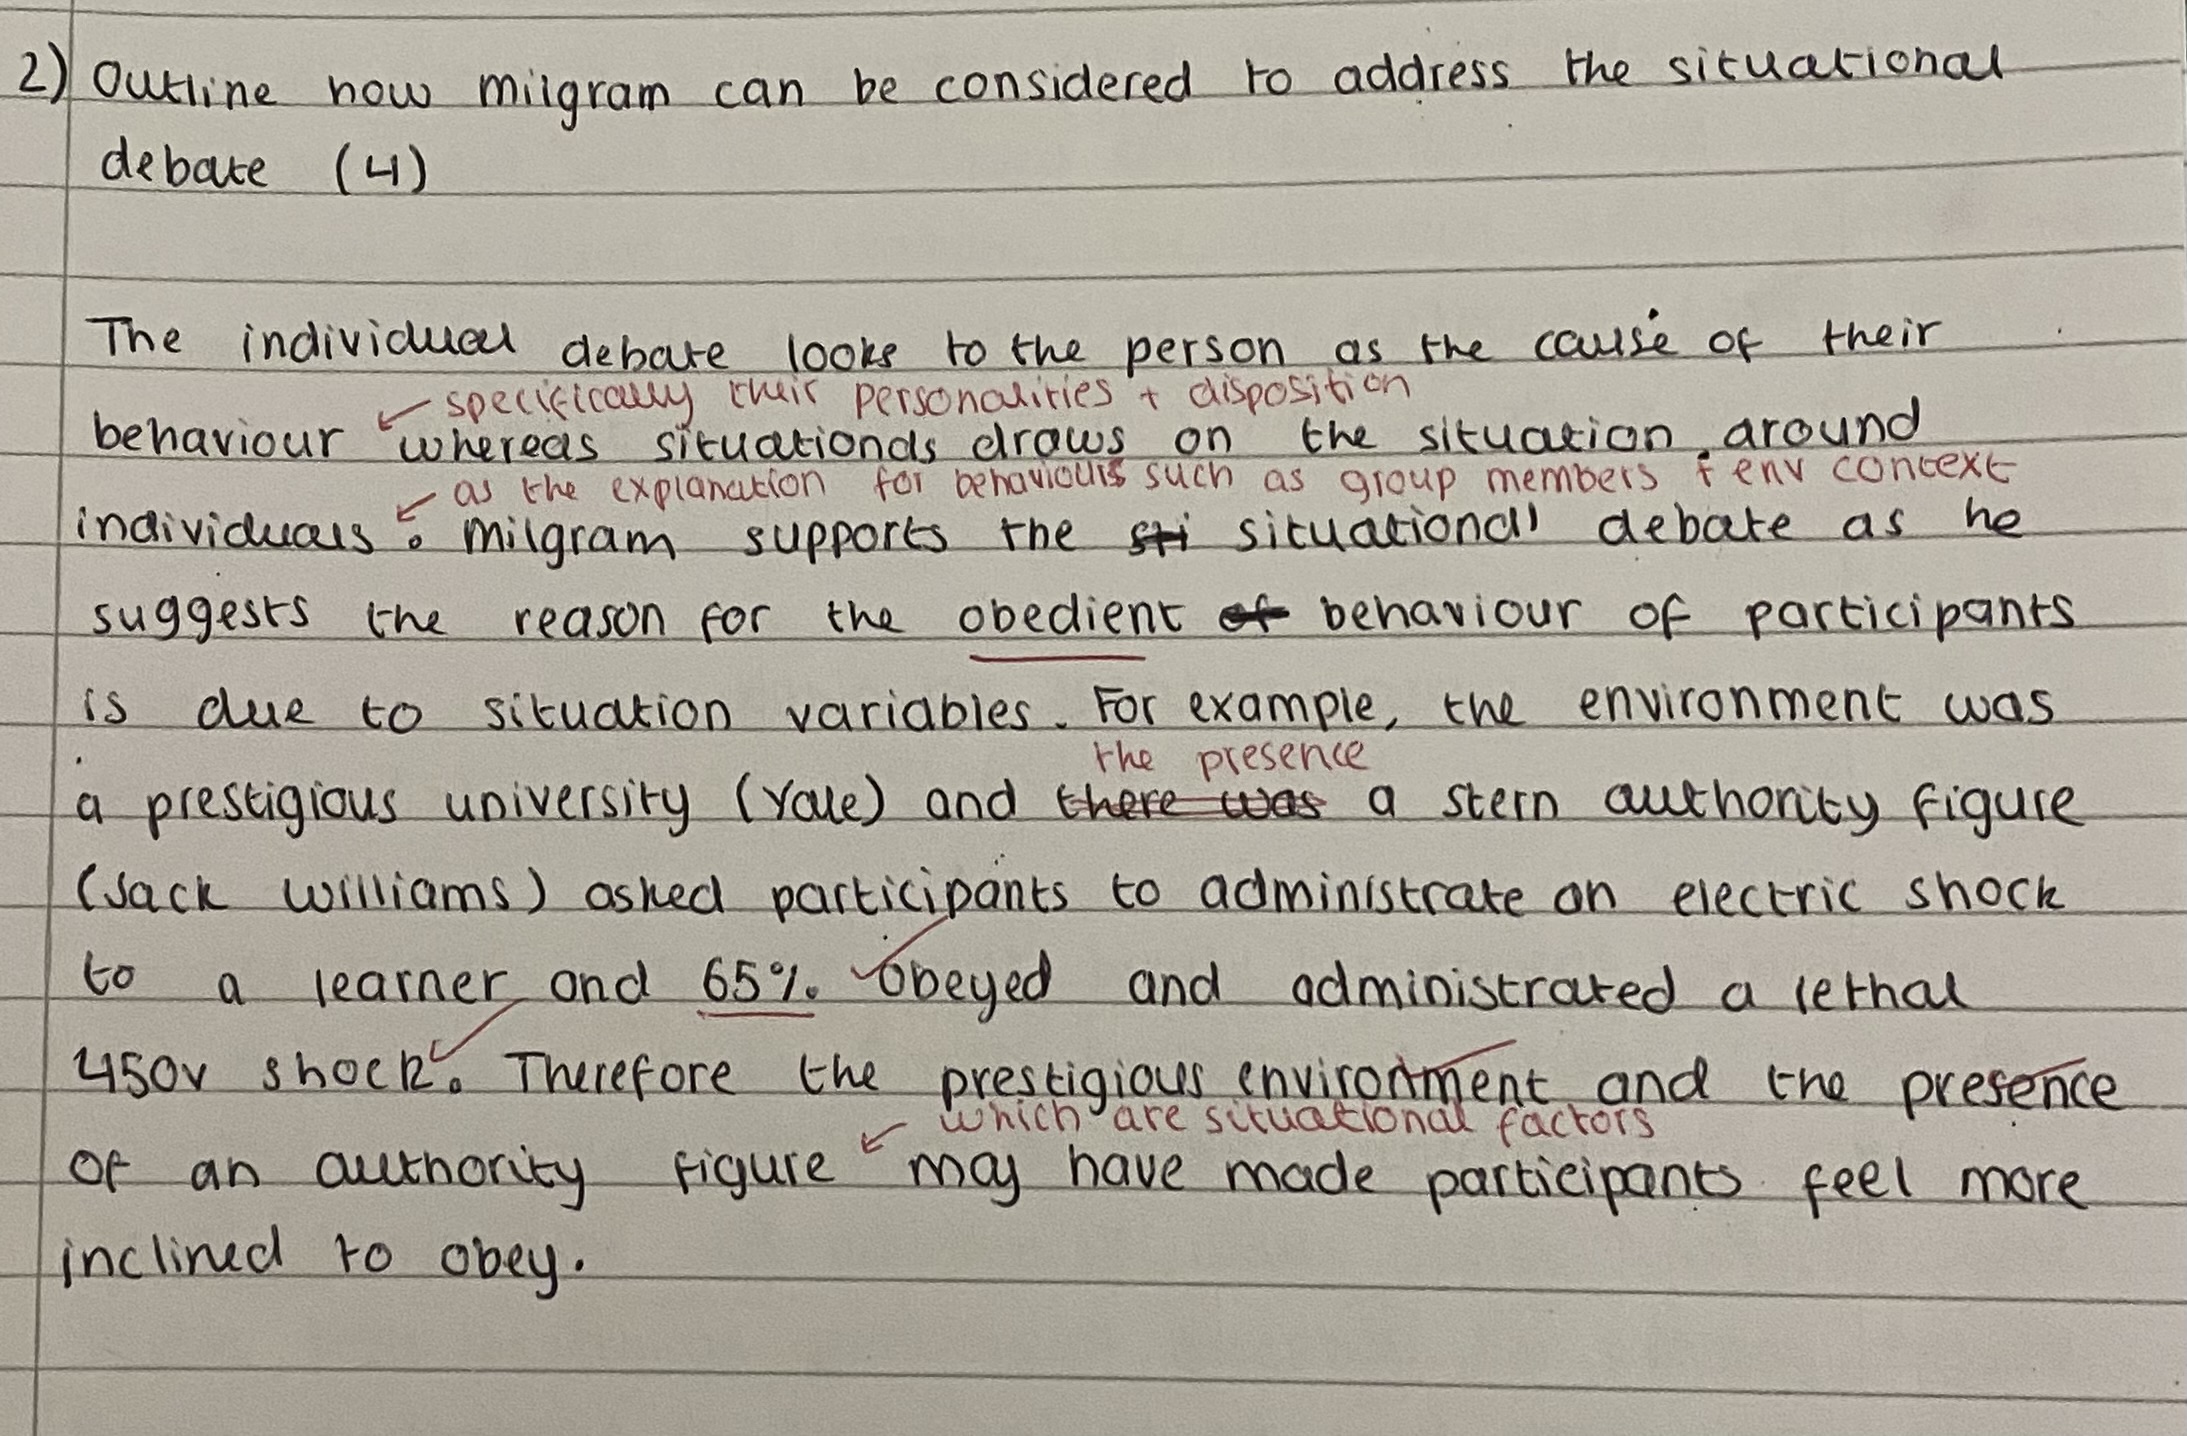 2) Outline how milgram can be considered to address the situational
debate (4)
The individual debate looks to the person as the cause of their
specifically their personalities + disposition
behaviour whereas situationals draws on the situation around
as the explanation for behaviours such as group members + env context
individuals. milgram supports the sti situational debate as he
suggests the reason for the obedient of behaviour of participants
is due to situation variables. For example, the environment was
the presence
a prestigious university (Yale) and there was a stern authority figure
(Jack Williams) asked participants to administrate an electric shock
to a learner and 65%. obeyed and administrated a lethal
450v shock. Therefore the prestigious environment and the presence
which are situational factors
of an authority figure may have made participants feel more
inclined to obey.